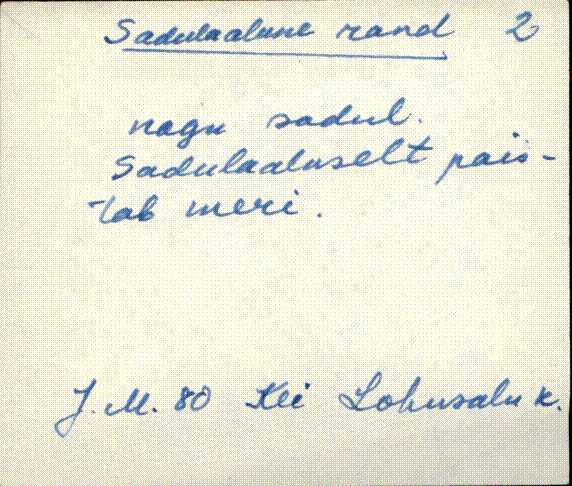 Sadulaalune rand 2
nagu sadul.
Sadulaaluselt pais-
-tab meri.
J. M. 80 Kei Lohusalu k.